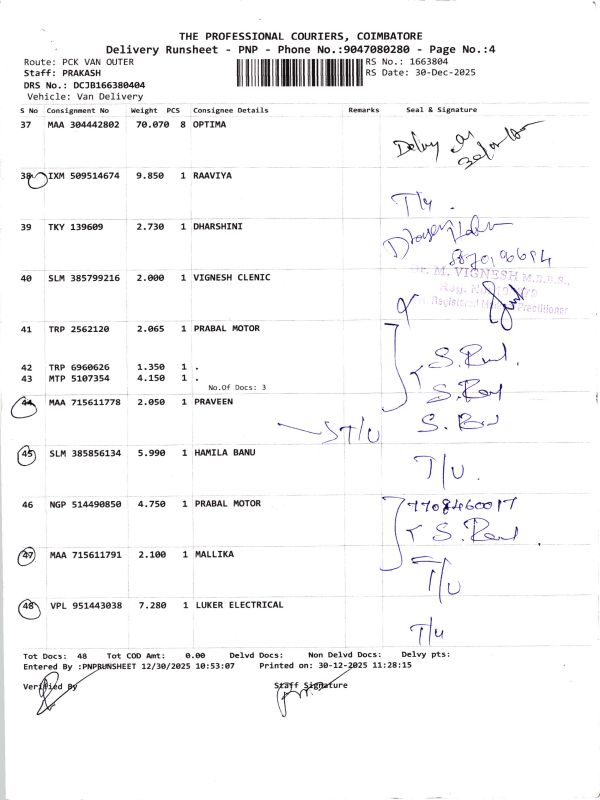 THE PROFESSIONAL COURIERS, COIMBATORE
Delivery Runsheet - PNP - Phone No.:9047080280 - Page No.:4
Route: PCK VAN OUTER RS No.: 1663804
Staff: PRAKASH RS Date: 30-Dec-2025
DRS No.: DCJB166380404
Vehicle: Van Delivery
S No Consignment No Weight PCS Consignee Details Remarks Seal & Signature
37 MAA 304442802 70.070 8 OPTIMA
Delvy
38 IXM 509514674 9.850 1 RAAVIYA
T/4.
39 TKY 139609 2.730 1 DHARSHINI
40 SLM 385799216 2.000 1 VIGNESH CLENIC
M. VIGNESH M.B.B.S.,
Registered Practitioner
41 TRP 2562120 2.065 1 PRABAL MOTOR
42 TRP 6960626 1.350 1 .
43 MTP 5107354 4.150 1 .
No.Of Docs: 3
44 MAA 715611778 2.050 1 PRAVEEN
T/U
45 SLM 385856134 5.990 1 HAMILA BANU
T/U.
46 NGP 514490850 4.750 1 PRABAL MOTOR
7708460017
47 MAA 715611791 2.100 1 MALLIKA
T/U
48 VPL 951443038 7.280 1 LUKER ELECTRICAL
T/4
Tot Docs: 48 Tot COD Amt: 0.00 Delvd Docs: Non Delvd Docs: Delvy pts:
Entered By :PNPRUNSHEET 12/30/2025 10:53:07 Printed on: 30-12-2025 11:28:15
Verified By Staff Signature